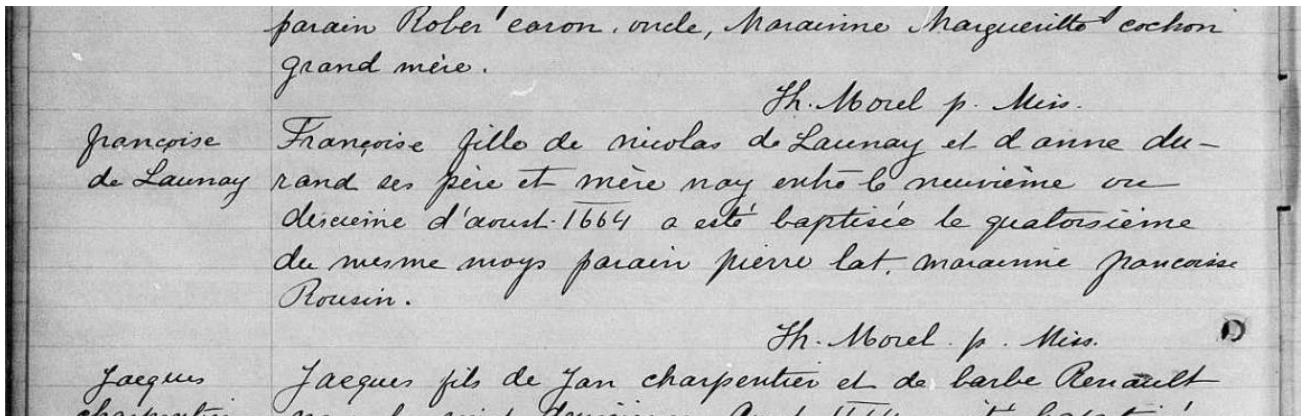 parain Rober caron, oncle, Marainne Margueritte cochon
grand mère.
Th. Morel p. Miss.
françoise
de Launay
Françoise fille de nicolas de Launay et d'anne du-
rand ses père et mère nay entre le neuvième ou
dixieme d'aoust 1664 a esté baptisée le quatorsième
du mesme moys parain pierre lat, marainne francoisse
Rousin.
Th. Morel. p. Miss.
Jacques
Jacques fils de Jan charpentier et de barbe Renault
charpentier